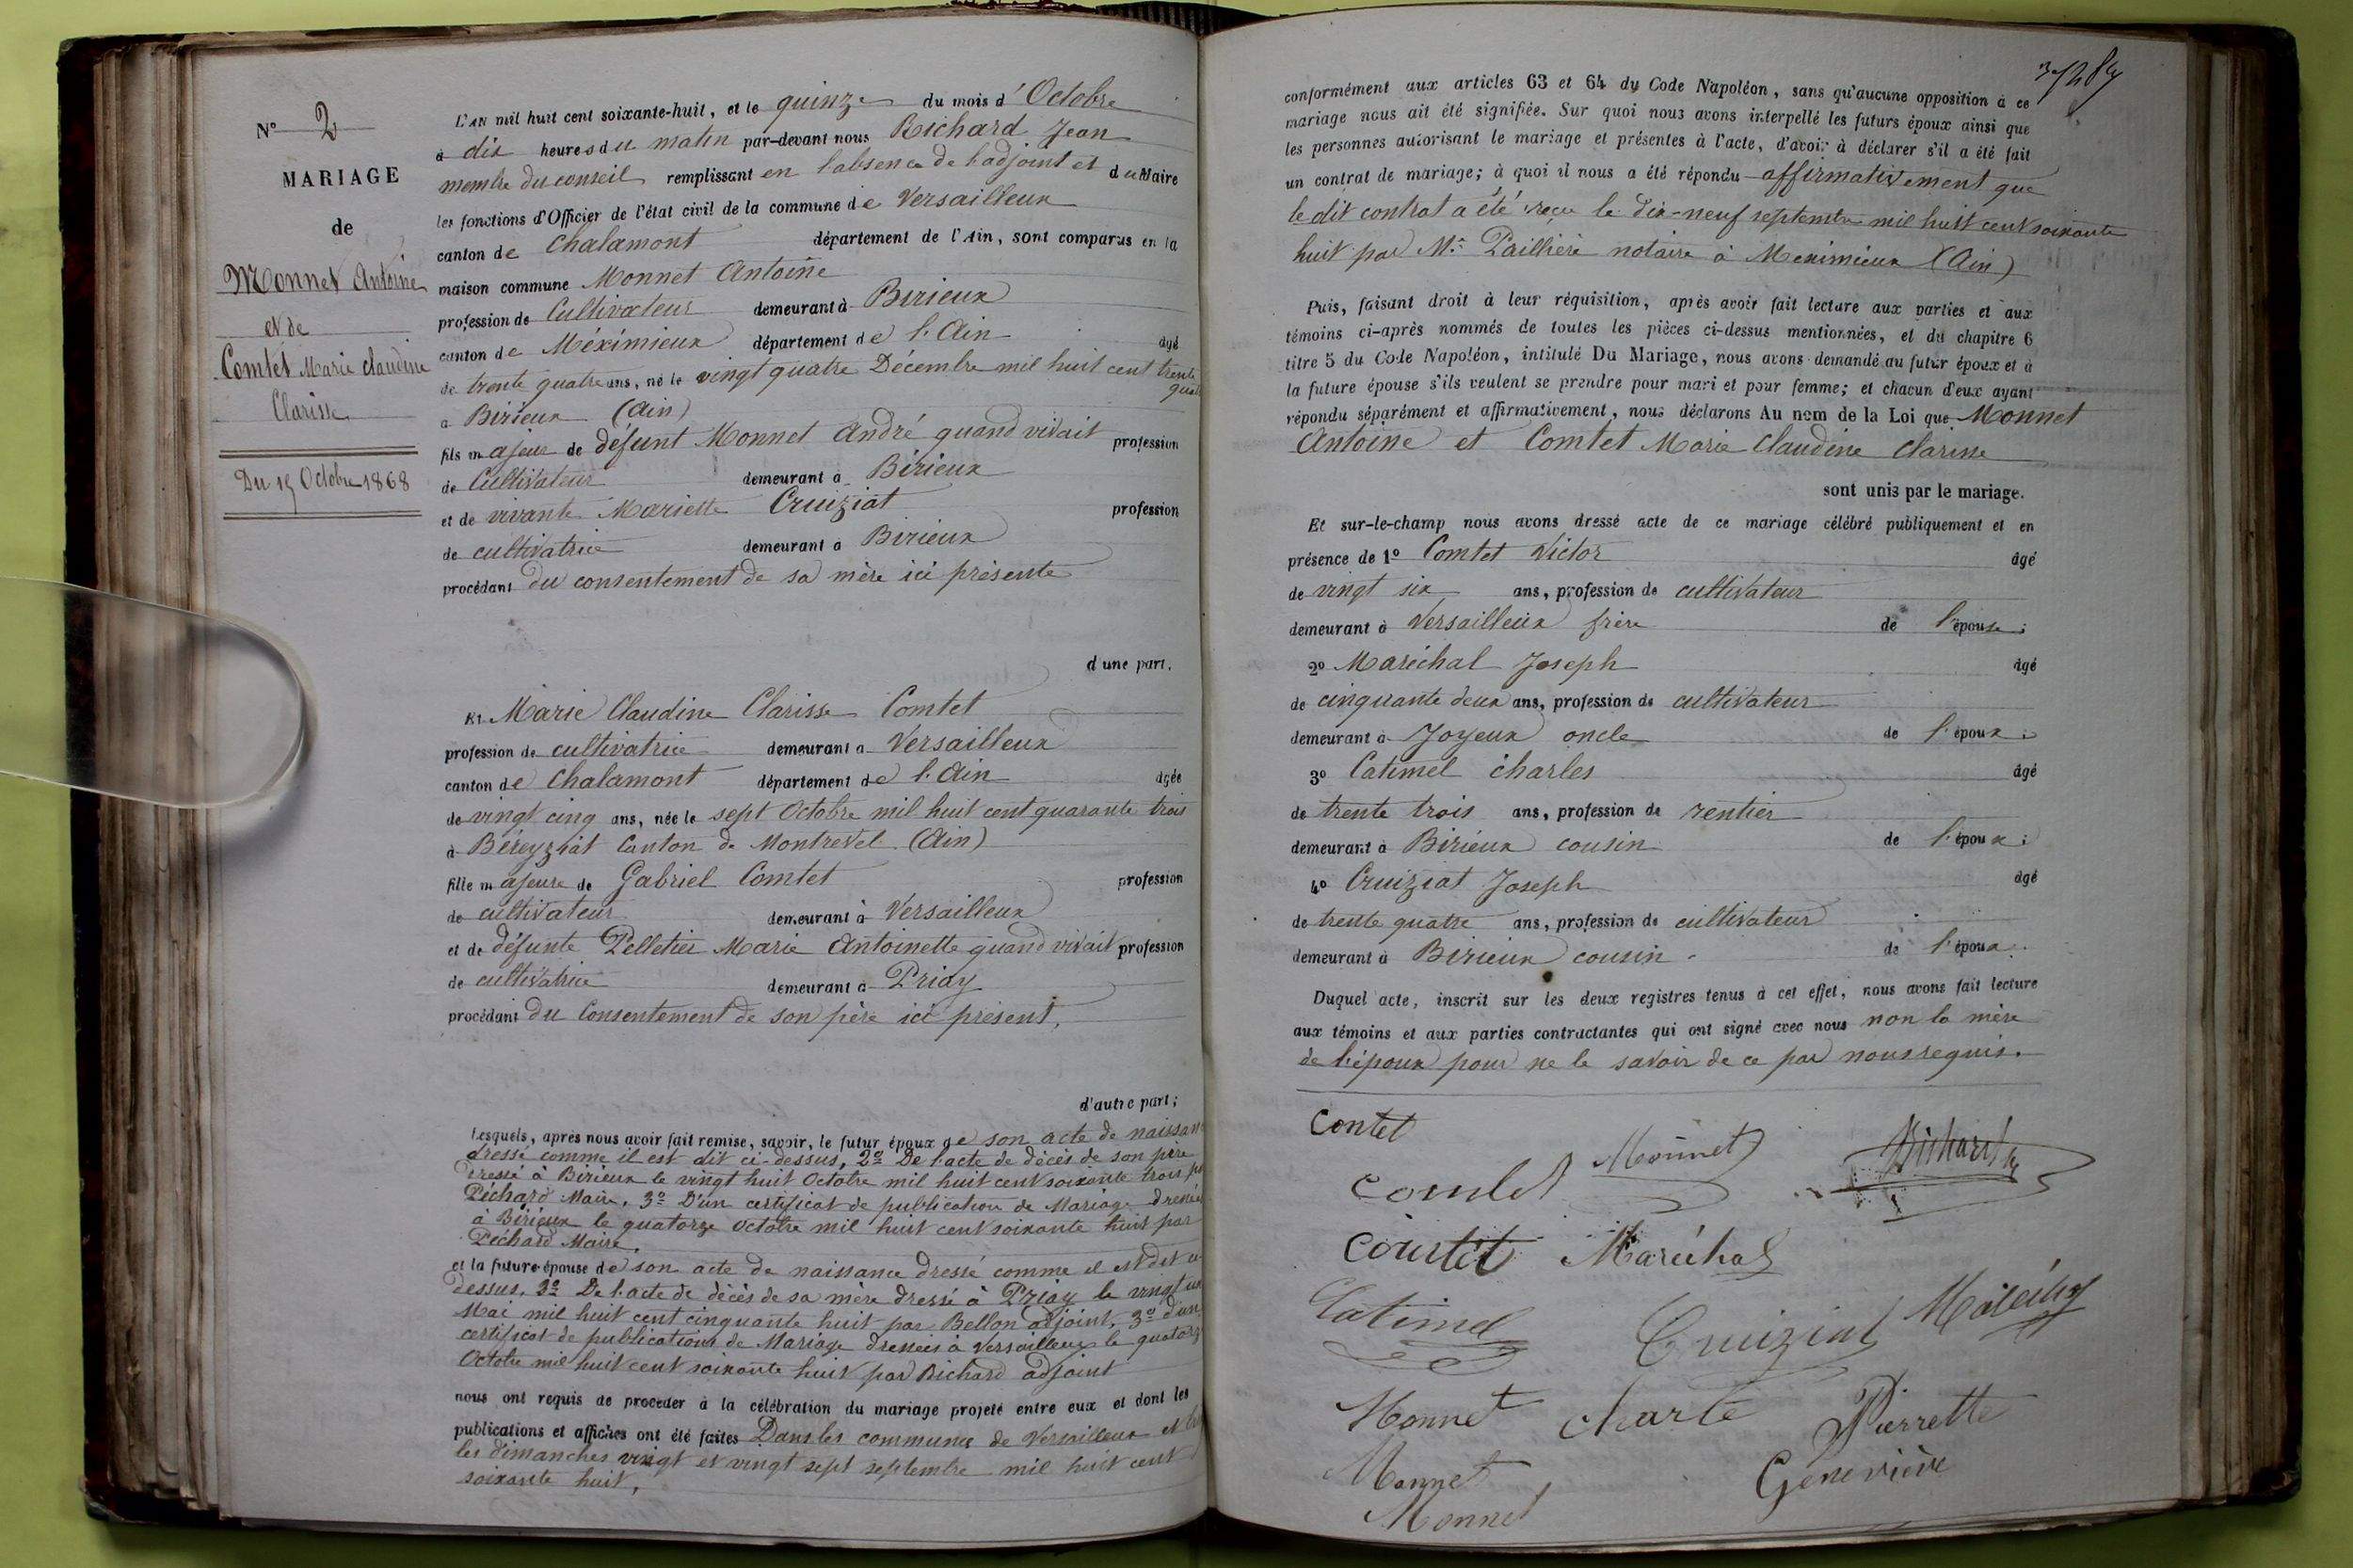 N° 2
MARIAGE
de
Monnet Antoine
et de
Comtet Marie Claudine
Clarisse
Du 15 Octobre 1868
L'AN mil huit cent soixante-huit, et le quinze du mois d'Octobre
à dix heures du matin par-devant nous Richard Jean
membre du conseil remplissant en l'absence de l'adjoint et du Maire
les fonctions d'Officier de l'état civil de la commune de Versailleux
canton de Chalamont département de l'Ain, sont comparus en la
maison commune Monnet Antoine
profession de Cultivateur demeurant à Birieux
canton de Méximieux département de l'Ain âgé
de trente quatre ans, né le vingt quatre Décembre mil huit cent trente
quatre
à Birieux (Ain)
fils majeur de défunt Monnet André quand vivait profession
de Cultivateur demeurant à Birieux
et de vivante Mariette Cruiziat profession
de cultivatrice demeurant à Birieux
procédant du consentement de sa mère ici présente
d'une part.
Et Marie Claudine Clarisse Comtet
profession de cultivatrice demeurant à Versailleux
canton de Chalamont département de l'Ain âgée
de vingt cinq ans, née le sept Octobre mil huit cent quarante trois
à Béreyziat Canton de Montrevel (Ain)
fille majeure de Gabriel Comtet profession
de cultivateur demeurant à Versailleux
et de défunte Pelletier Marie Antoinette quand vivait profession
de cultivatrice demeurant à Priay
procédant du Consentement de son père ici présent,
d'autre part;
Lesquels, après nous avoir fait remise, savoir, le futur époux de son acte de naissan
dressé comme il est dit ci-dessus, 2° De l'acte de décès de son père
dressé à Birieux le vingt huit Octobre mil huit cent soixante trois
Péchard Maire, 3° D'un certificat de publication de Mariage dressé
à Birieux le quatorze octobre mil huit cent soixante huit par
Péchard Maire.
et la future épouse de son acte de naissance dressé comme il est dit ci
dessus, 2° De l'acte de décès de sa mère dressé à Priay le vingt
Mai mil huit cent cinquante huit par Bellon adjoint, 3° d'un
certificat de publications de Mariage dressées à Versailleux le quatorze
Octobre mil huit cent soixante huit par Richard adjoint
nous ont requis de procéder à la célébration du mariage projeté entre eux et dont les
publications et affiches ont été faites Dans les communes de Versailleux et
les dimanches vingt et vingt sept septembre mil huit cent
soixante huit,
conformément aux articles 63 et 64 du Code Napoléon, sans qu'aucune opposition à ce
mariage nous ait été signifiée. Sur quoi nous avons interpellé les futurs époux ainsi que
les personnes autorisant le mariage et présentes à l'acte, d'avoir à déclarer s'il a été fait
un contrat de mariage; à quoi il nous a été répondu affirmativement que
le dit contrat a été reçu le dix-neuf septembre mil huit cent soixante
huit par Me Paillière notaire à Meximieux (Ain)
Puis, faisant droit à leur réquisition, après avoir fait lecture aux parties et aux
témoins ci-après nommés de toutes les pièces ci-dessus mentionnées, et du chapitre 6
titre 5 du Code Napoléon, intitulé Du Mariage, nous avons demandé au futur époux et à
la future épouse s'ils veulent se prendre pour mari et pour femme; et chacun d'eux ayant
répondu séparément et affirmativement, nous déclarons Au nom de la Loi que Monnet
Antoine et Comtet Marie Claudine Clarisse
sont unis par le mariage.
Et sur-le-champ nous avons dressé acte de ce mariage célébré publiquement et en
présence de 1° Comtet Victor âgé
de vingt six ans, profession de cultivateur
demeurant à Versailleux frère de l'épouse;
2° Maréchal Joseph âgé
de cinquante deux ans, profession de cultivateur
demeurant à Joyeux oncle de l'époux;
3° Catimel Charles âgé
de trente trois ans, profession de rentier
demeurant à Birieux cousin de l'époux;
4° Cruiziat Joseph âgé
de trente quatre ans, profession de cultivateur
demeurant à Birieux cousin de l'époux.
Duquel acte, inscrit sur les deux registres tenus à cet effet, nous avons fait lecture
aux témoins et aux parties contractantes qui ont signé avec nous non la mère
de l'époux pour ne le savoir de ce par nous requis.
Contet
Monnet Richard
Comtet
Comtet Maréchal
Catimel Cruiziat Maréchal
Monnet Charle Pierrette
Monnet Geneviève
Monnet